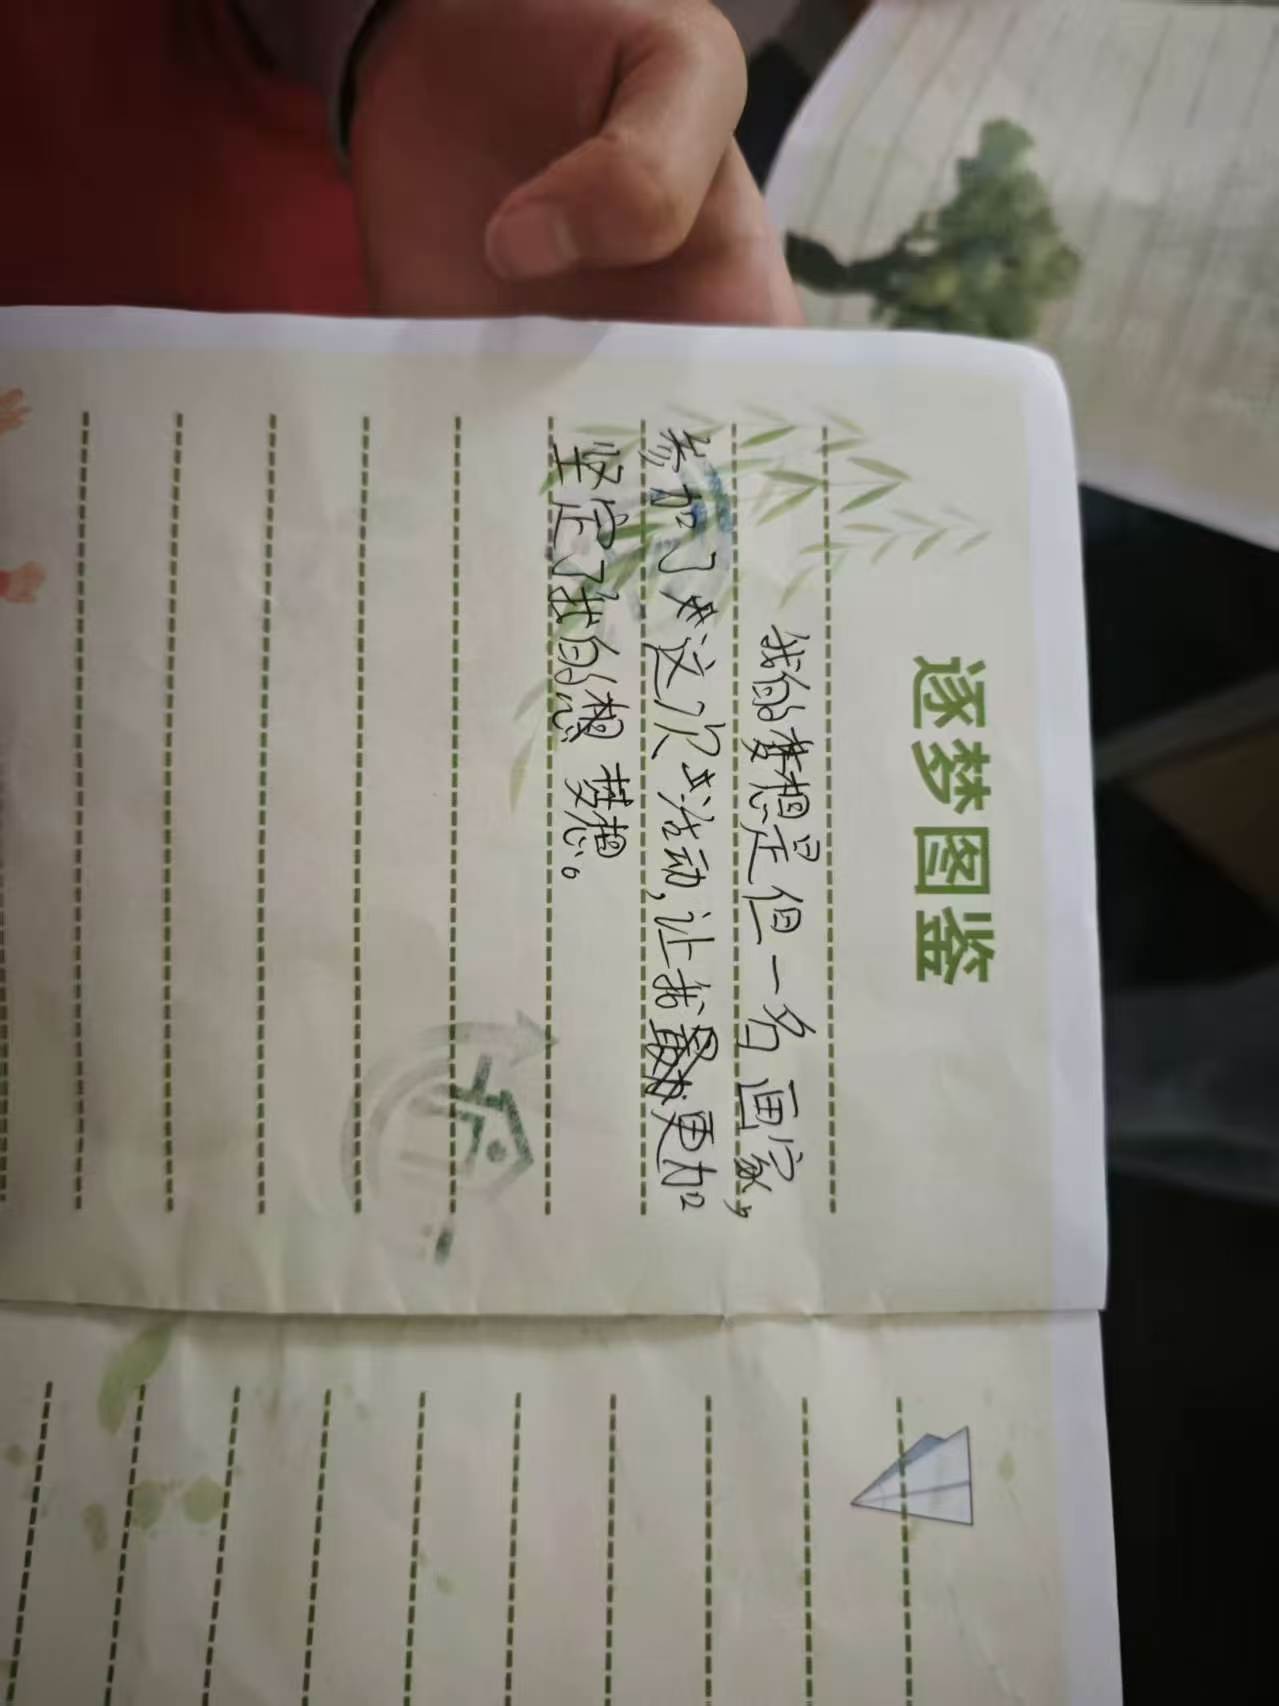 逐梦图鉴
我的梦想是但一名画家，
参加了这次活动，让我更加
坚定了我的想 梦想。